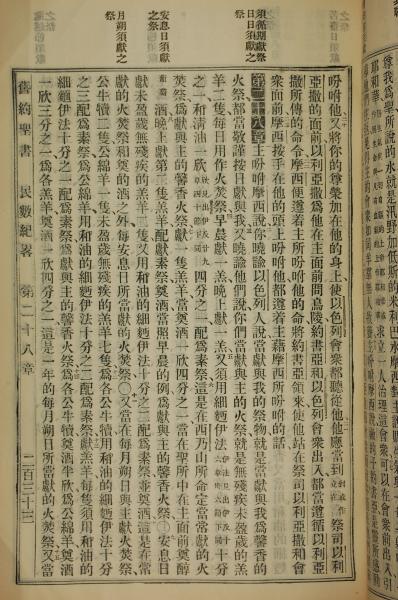 須循期獻祭
日日須獻之
祭
安息日須獻
之祭
月朔須獻之
祭
吩咐他又將你的尊榮加在他的身上使以色列會衆都聽從他他應當到祭司以利
亞撒的面前以利亞撒爲他在主面前問烏陵約書亞和以色列會衆出入都當遵循以利亞
撒所傳的命令摩西便遵着主所吩咐他的命將約書亞領來使他站在祭司以利亞撒和會
衆面前摩西按手在他的頭上吩咐他都遵着主藉摩西所吩咐的話
第二十八章主吩咐摩西說你曉諭以色列人說當獻與我的祭物就是當獻與我爲馨香的
火祭都當敬謹按日獻與我又曉諭他們說你們當獻與主的火祭就是無殘疾未盈歲的羔
羊二隻每日用作火焚祭早晨獻一羔晚上獻一羔又須用細麵伊法十分
之一和清油一欣四分之一配爲素祭這是在西乃山所命定當常獻的火
焚祭爲獻與主的馨香火祭爲一隻羔羊當奠酒一欣四分之一當在聖所中在主面前奠醇
酒晚上獻第二隻羔羊素祭奠酒當照早晨的例爲獻與主的馨香火祭安息日
獻未盈歲無殘疾的羔羊二隻又用和油的細麵伊法十分之二配爲素祭並奠酒這是在常
獻的火焚祭和奠的酒之外每安息日所當獻的火焚祭又當在每月朔日與主獻火焚祭
公牛犢二隻公綿羊一隻未盈歲無殘疾的羔羊七隻爲各公牛犢用和油的細麵伊法十分
之三配爲素祭爲公綿羊用和油的細麵伊法十分之二配爲素祭獻羔羊每隻須用和油的
細麵伊法十分之一配爲素祭爲獻與主的馨香火祭爲各公牛犢奠酒半欣爲公綿羊奠酒
一欣三分之一爲各羔羊奠酒一欣四分之一這是一年的每月朔日所當獻的火焚祭又當
舊約聖書 民數紀畧 第二十八章 二百三十三